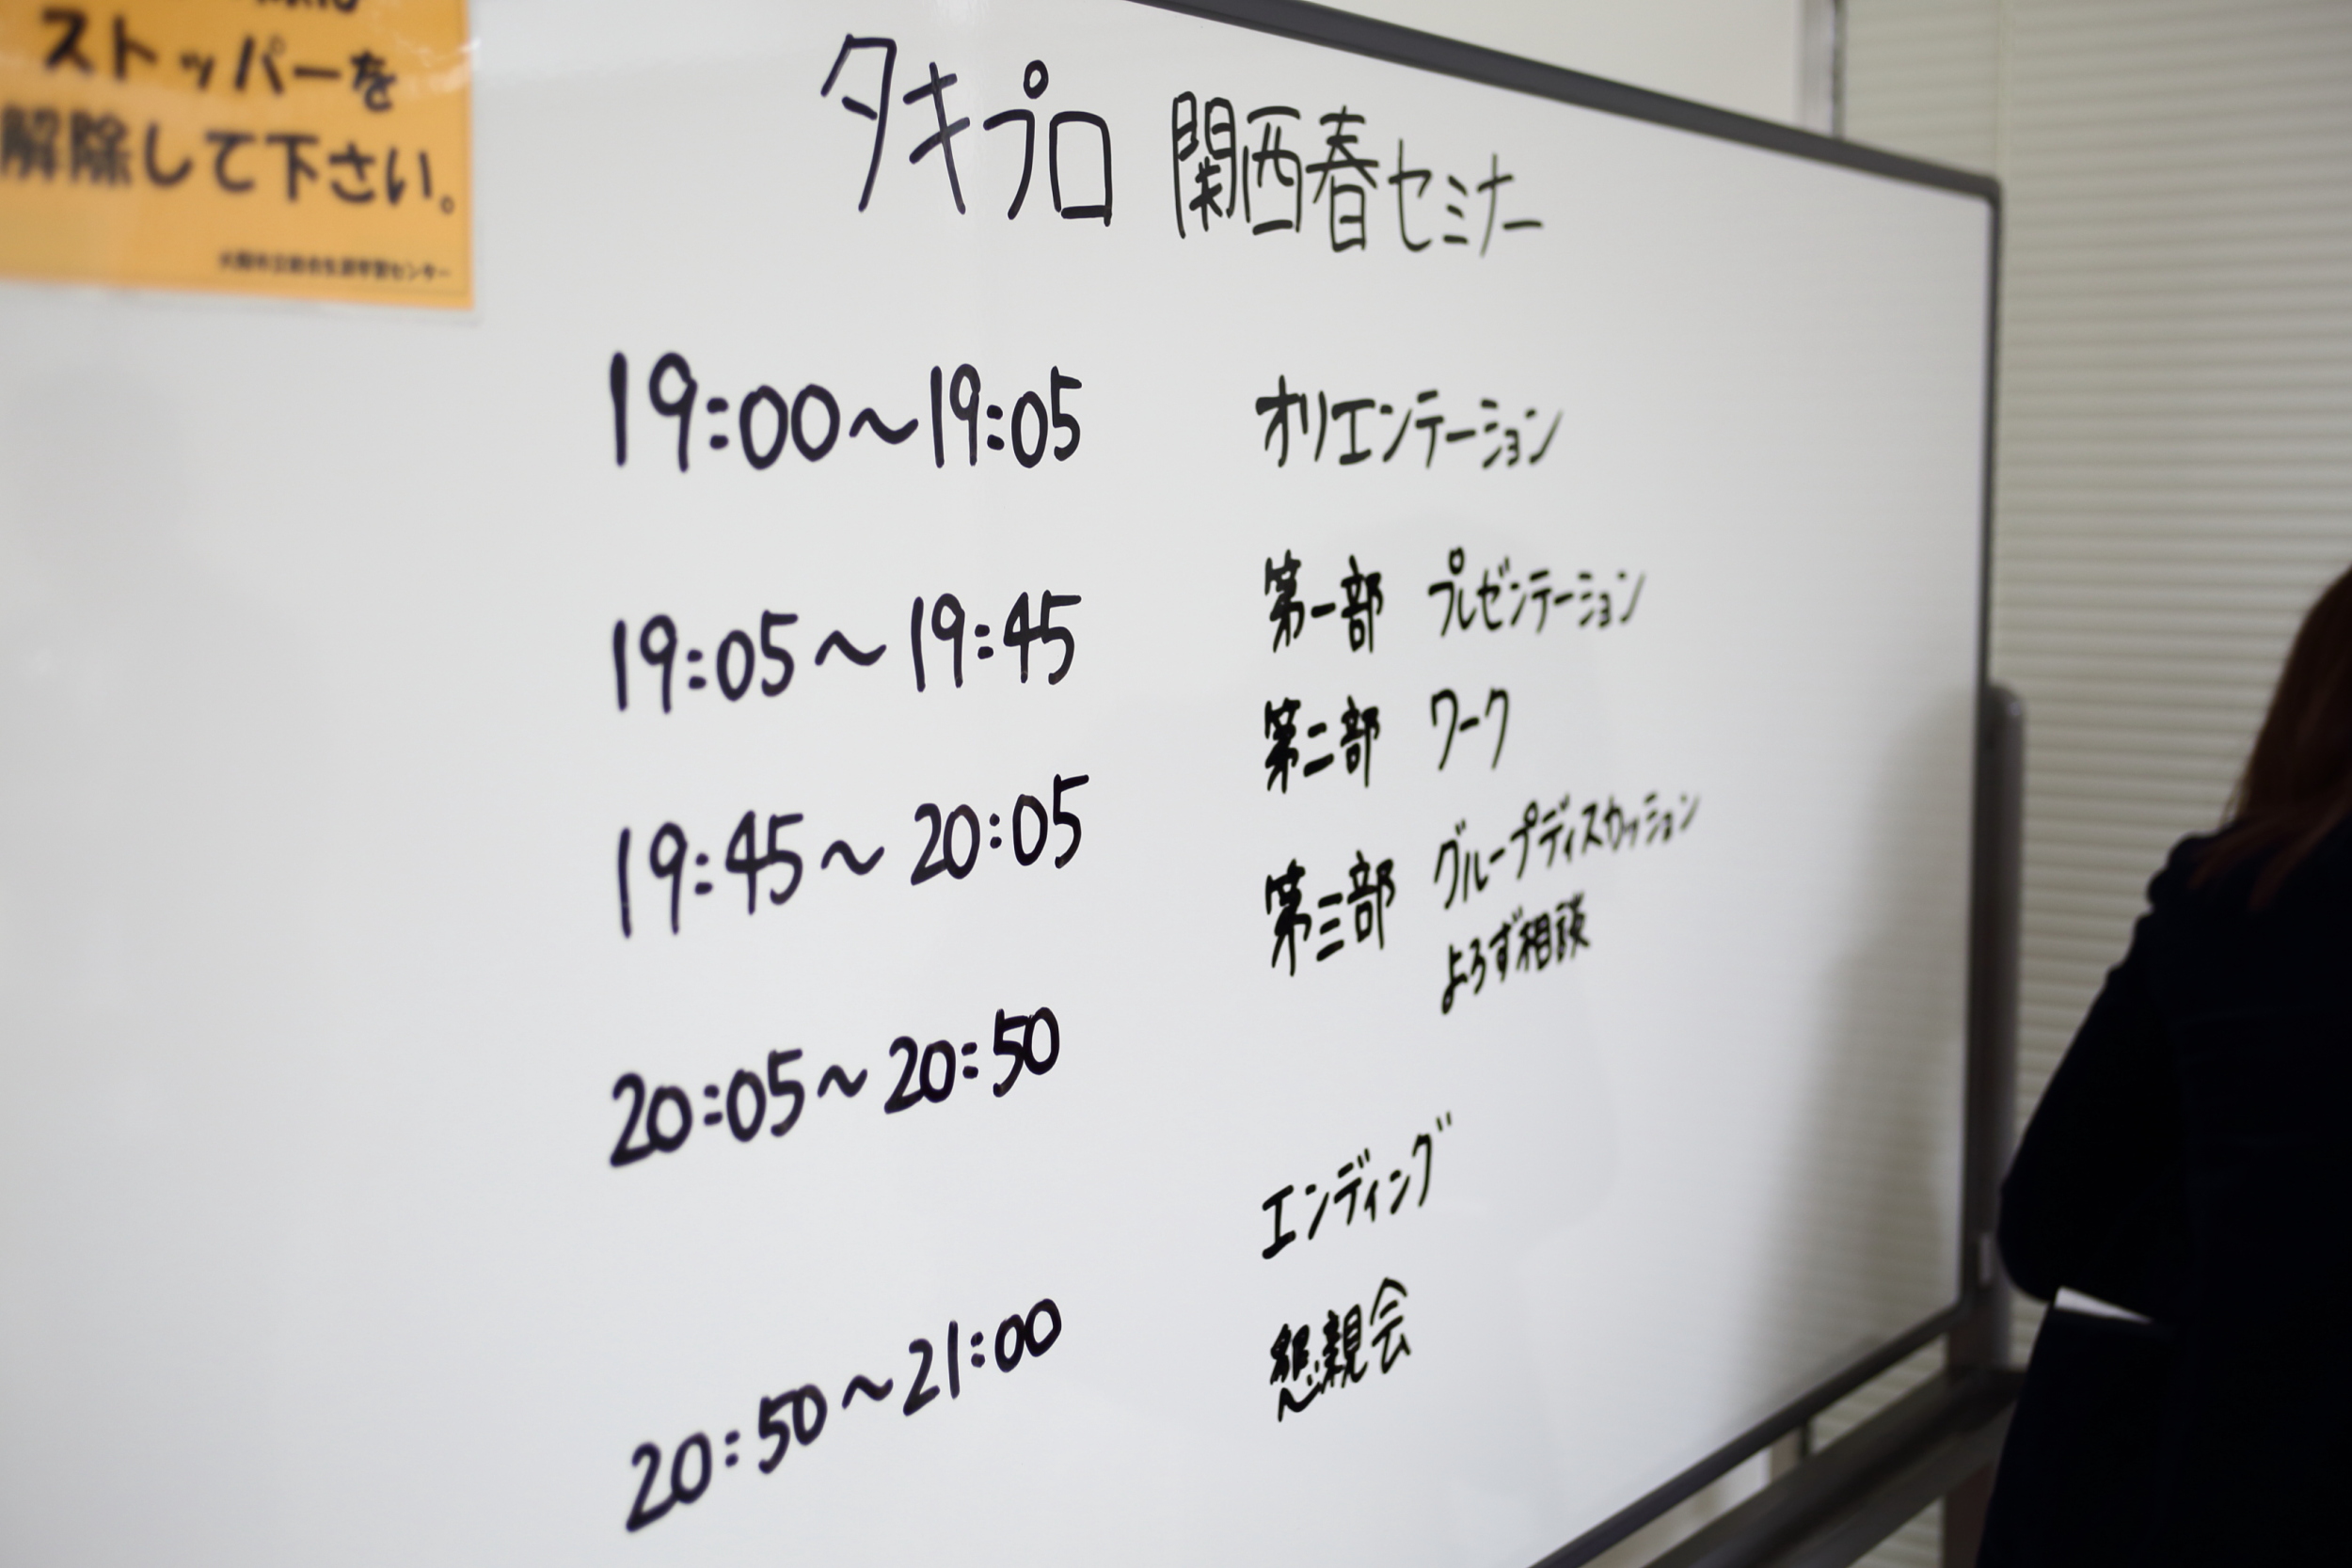 ストッパーを
解除して下さい。
タキプロ 関西春セミナー
19:00～19:05 オリエンテーション
19:05～19:45 第一部 プレゼンテーション
19:45～20:05 第二部 ワーク
20:05～20:50 第三部 グループディスカッション
よろず相談
20:50～21:00 エンディング
懇親会